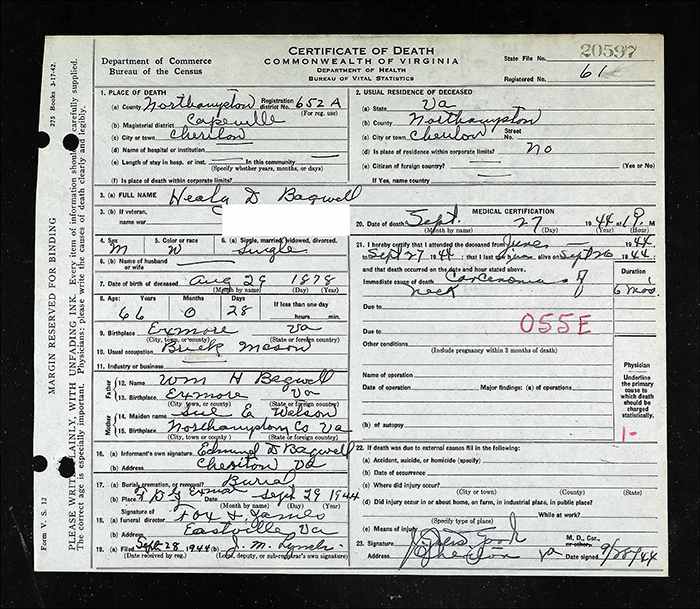 CERTIFICATE OF DEATH
COMMONWEALTH OF VIRGINIA
DEPARTMENT OF HEALTH
BUREAU OF VITAL STATISTICS
Department of Commerce
Bureau of the Census
State File No. 20597
Registered No. 61
275 Books 3-17-42.
MARGIN RESERVED FOR BINDING
PLEASE WRITE PLAINLY, WITH UNFADING INK. Every item of information should be carefully supplied.
The correct age is especially important. Physicians: please write the causes of death clearly and legibly.
Form V. S. 12
1. PLACE OF DEATH
(a) County Northampton Registration district No. 652A
(For reg. use)
(b) Magisterial district Capeville
(c) City or town Cheriton
(d) Name of hospital or institution
(e) Length of stay in hosp. or inst. In this community
(Specify whether years, months, or days)
(f) Is place of death within corporate limits?
2. USUAL RESIDENCE OF DECEASED
(a) State Va
(b) County Northampton
(c) City or town Cheriton Street No.
(d) Is place of residence within corporate limits? No
(e) Citizen of foreign country? (Yes or No)
If Yes, name country
3. (a) FULL NAME Healy D Bagwell
3. (b) If veteran,
name war
4. Sex M 5. Color or race W 6. (a) Single, married, widowed, divorced. Single
6. (b) Name of husband
or wife
7. Date of birth of deceased Aug 29 1878
(Month by name) (Day) (Year)
8. Age: 66 0 28 If less than one day
hours min.
9. Birthplace Exmore Va
(City, town, or county) (State or foreign country)
10. Usual occupation Brick Mason
11. Industry or business
Father
12. Name Wm H Bagwell
13. Birthplace Exmore Va
(City, town, or county) (State or foreign country)
Mother
14. Maiden name Sue E
15. Birthplace Northampton Co Va
(City, town, or county) (State or foreign country)
16. (a) Informant's own signature Edmund D Bagwell
(b) Address Cheriton Va
17. (a) Burial, cremation, or removal? Burial
(b) Place Sept 29 1944
(Month) (Day) (Year)
18. Signature of
(a) funeral director Fox & James
(b) Address Eastville Va
19. (a) Filed Sept 28 1944 (b) J. M. Lynch
(Date received by reg.) (Local, deputy, or sub-registrar's own signature)
MEDICAL CERTIFICATION
20. Date of death Sept. 27 1944 at M
(Month by name) (Day) (Year) (Hour)
21. I hereby certify that I attended the deceased from June 1944
to Sept 27 1944; that I last saw him alive on Sept 26 1944;
and that death occurred on the date and hour stated above.
Duration
Immediate cause of death Carcinoma of
neck 6 mos
Due to
055E
Due to
Other conditions
(Include pregnancy within 3 months of death)
Name of operation
Date of operation Major findings: (a) of operation
(b) of autopsy
Physician
Underline
the primary
cause to
which death
should be
charged
statistically.
1-
22. If death was due to external causes fill in the following:
(a) Accident, suicide, or homicide (specify)
(b) Date of occurrence
(c) Where did injury occur?
(City or town) (County) (State)
(d) Did injury occur in or about home, on farm, in industrial place, in public place?
While at work?
(Specify type of place)
(e) Means of injury
23. Signature M. D., Cor.,
or other.
Address Cheriton Va Date signed 9/28/44